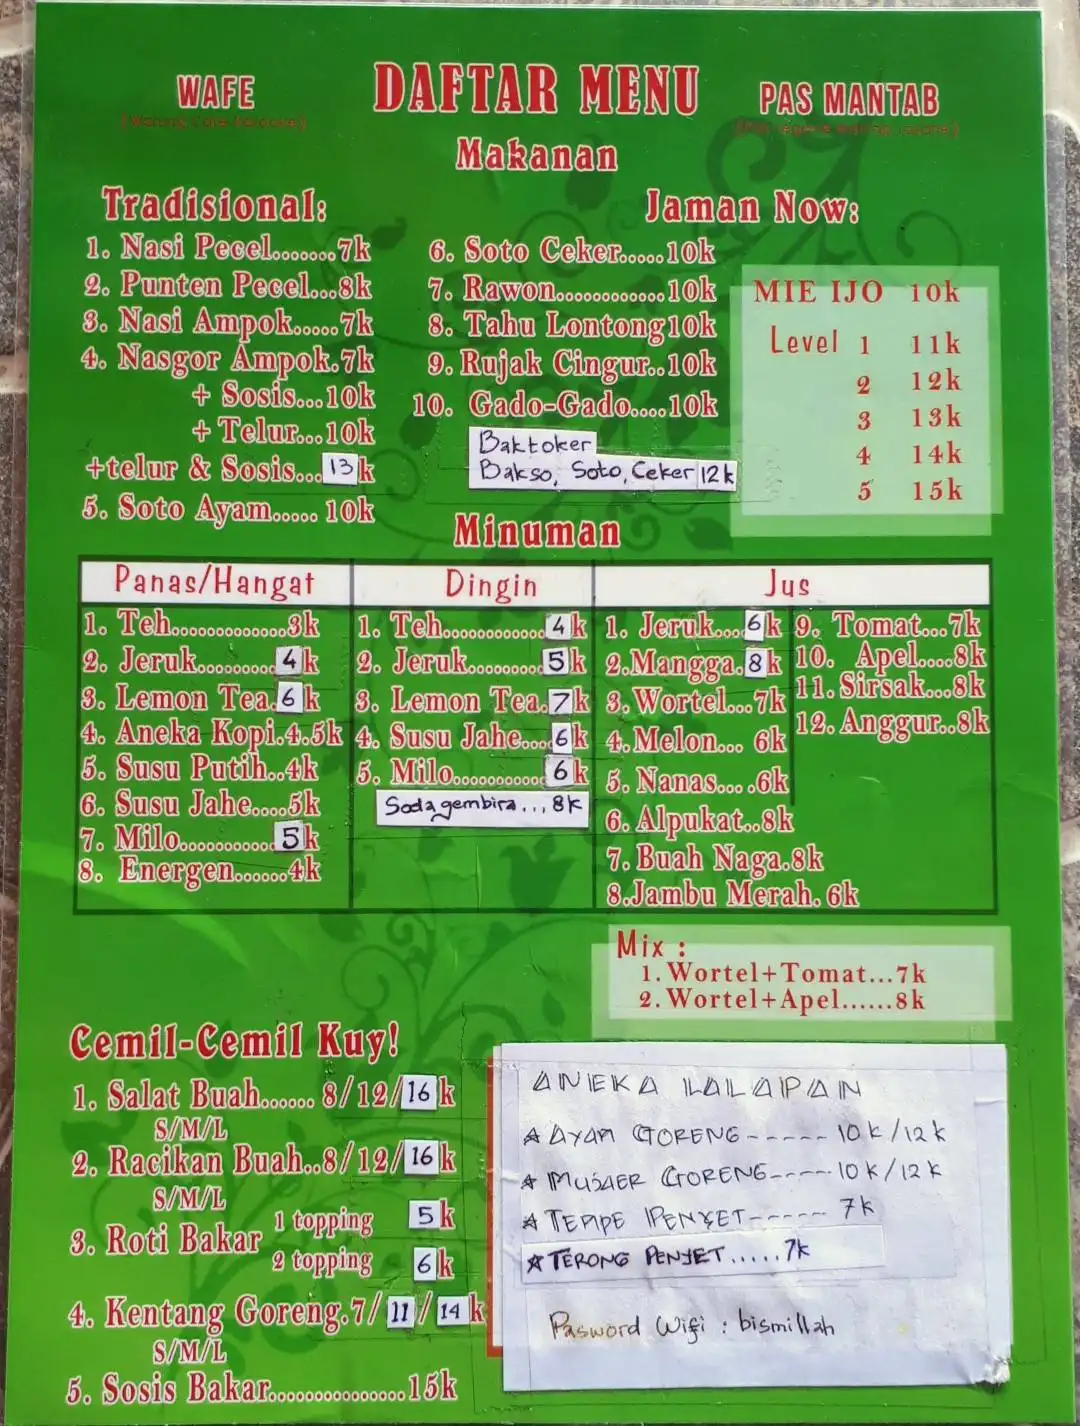 WAFE
DAFTAR MENU
PAS MANTAB
Makanan
Tradisional:
1. Nasi Pecel.......7k
2. Punten Pecel...8k
3. Nasi Ampok.....7k
4. Nasgor Ampok.7k
+ Sosis...10k
+ Telur...10k
+telur & Sosis...13k
5. Soto Ayam..... 10k
Jaman Now:
6. Soto Ceker.....10k
7. Rawon............10k
8. Tahu Lontong10k
9. Rujak Cingur..10k
10. Gado-Gado.....10k
Baktoker
Bakso, Soto, Ceker 12k
MIE IJO 10k
Level 1 11k
2 12k
3 13k
4 14k
5 15k
Minuman
Panas/Hangat
1. Teh.............3k
2. Jeruk.........4k
3. Lemon Tea.6k
4. Aneka Kopi.4.5k
5. Susu Putih..4k
6. Susu Jahe....5k
7. Milo...........5k
8. Energen......4k
Dingin
1. Teh............4k
2. Jeruk.........5k
3. Lemon Tea.7k
4. Susu Jahe....6k
5. Milo...........6k
Soda gembira... 8k
Jus
1. Jeruk....6k
2.Mangga.8k
3.Wortel...7k
4.Melon... 6k
5. Nanas....6k
6. Alpukat..8k
7. Buah Naga.8k
8.Jambu Merah. 6k
9. Tomat...7k
10. Apel....8k
11. Sirsak...8k
12. Anggur..8k
Mix :
1. Wortel+Tomat...7k
2. Wortel+Apel......8k
Cemil-Cemil Kuy!
1. Salat Buah...... 8/12/16k
S/M/L
2. Racikan Buah..8/12/16k
S/M/L
3. Roti Bakar
1 topping 5k
2 topping 6k
4. Kentang Goreng.7/11/14k
S/M/L
5. Sosis Bakar...............15k
ANEKA LALAPAN
☆ AYAM GORENG ----- 10K/12K
☆ MUJAER GORENG---- 10K/12K
☆ TEMPE PENYET----- 7K
☆ TERONG PENYET.....7K
Pasword Wifi : bismillah